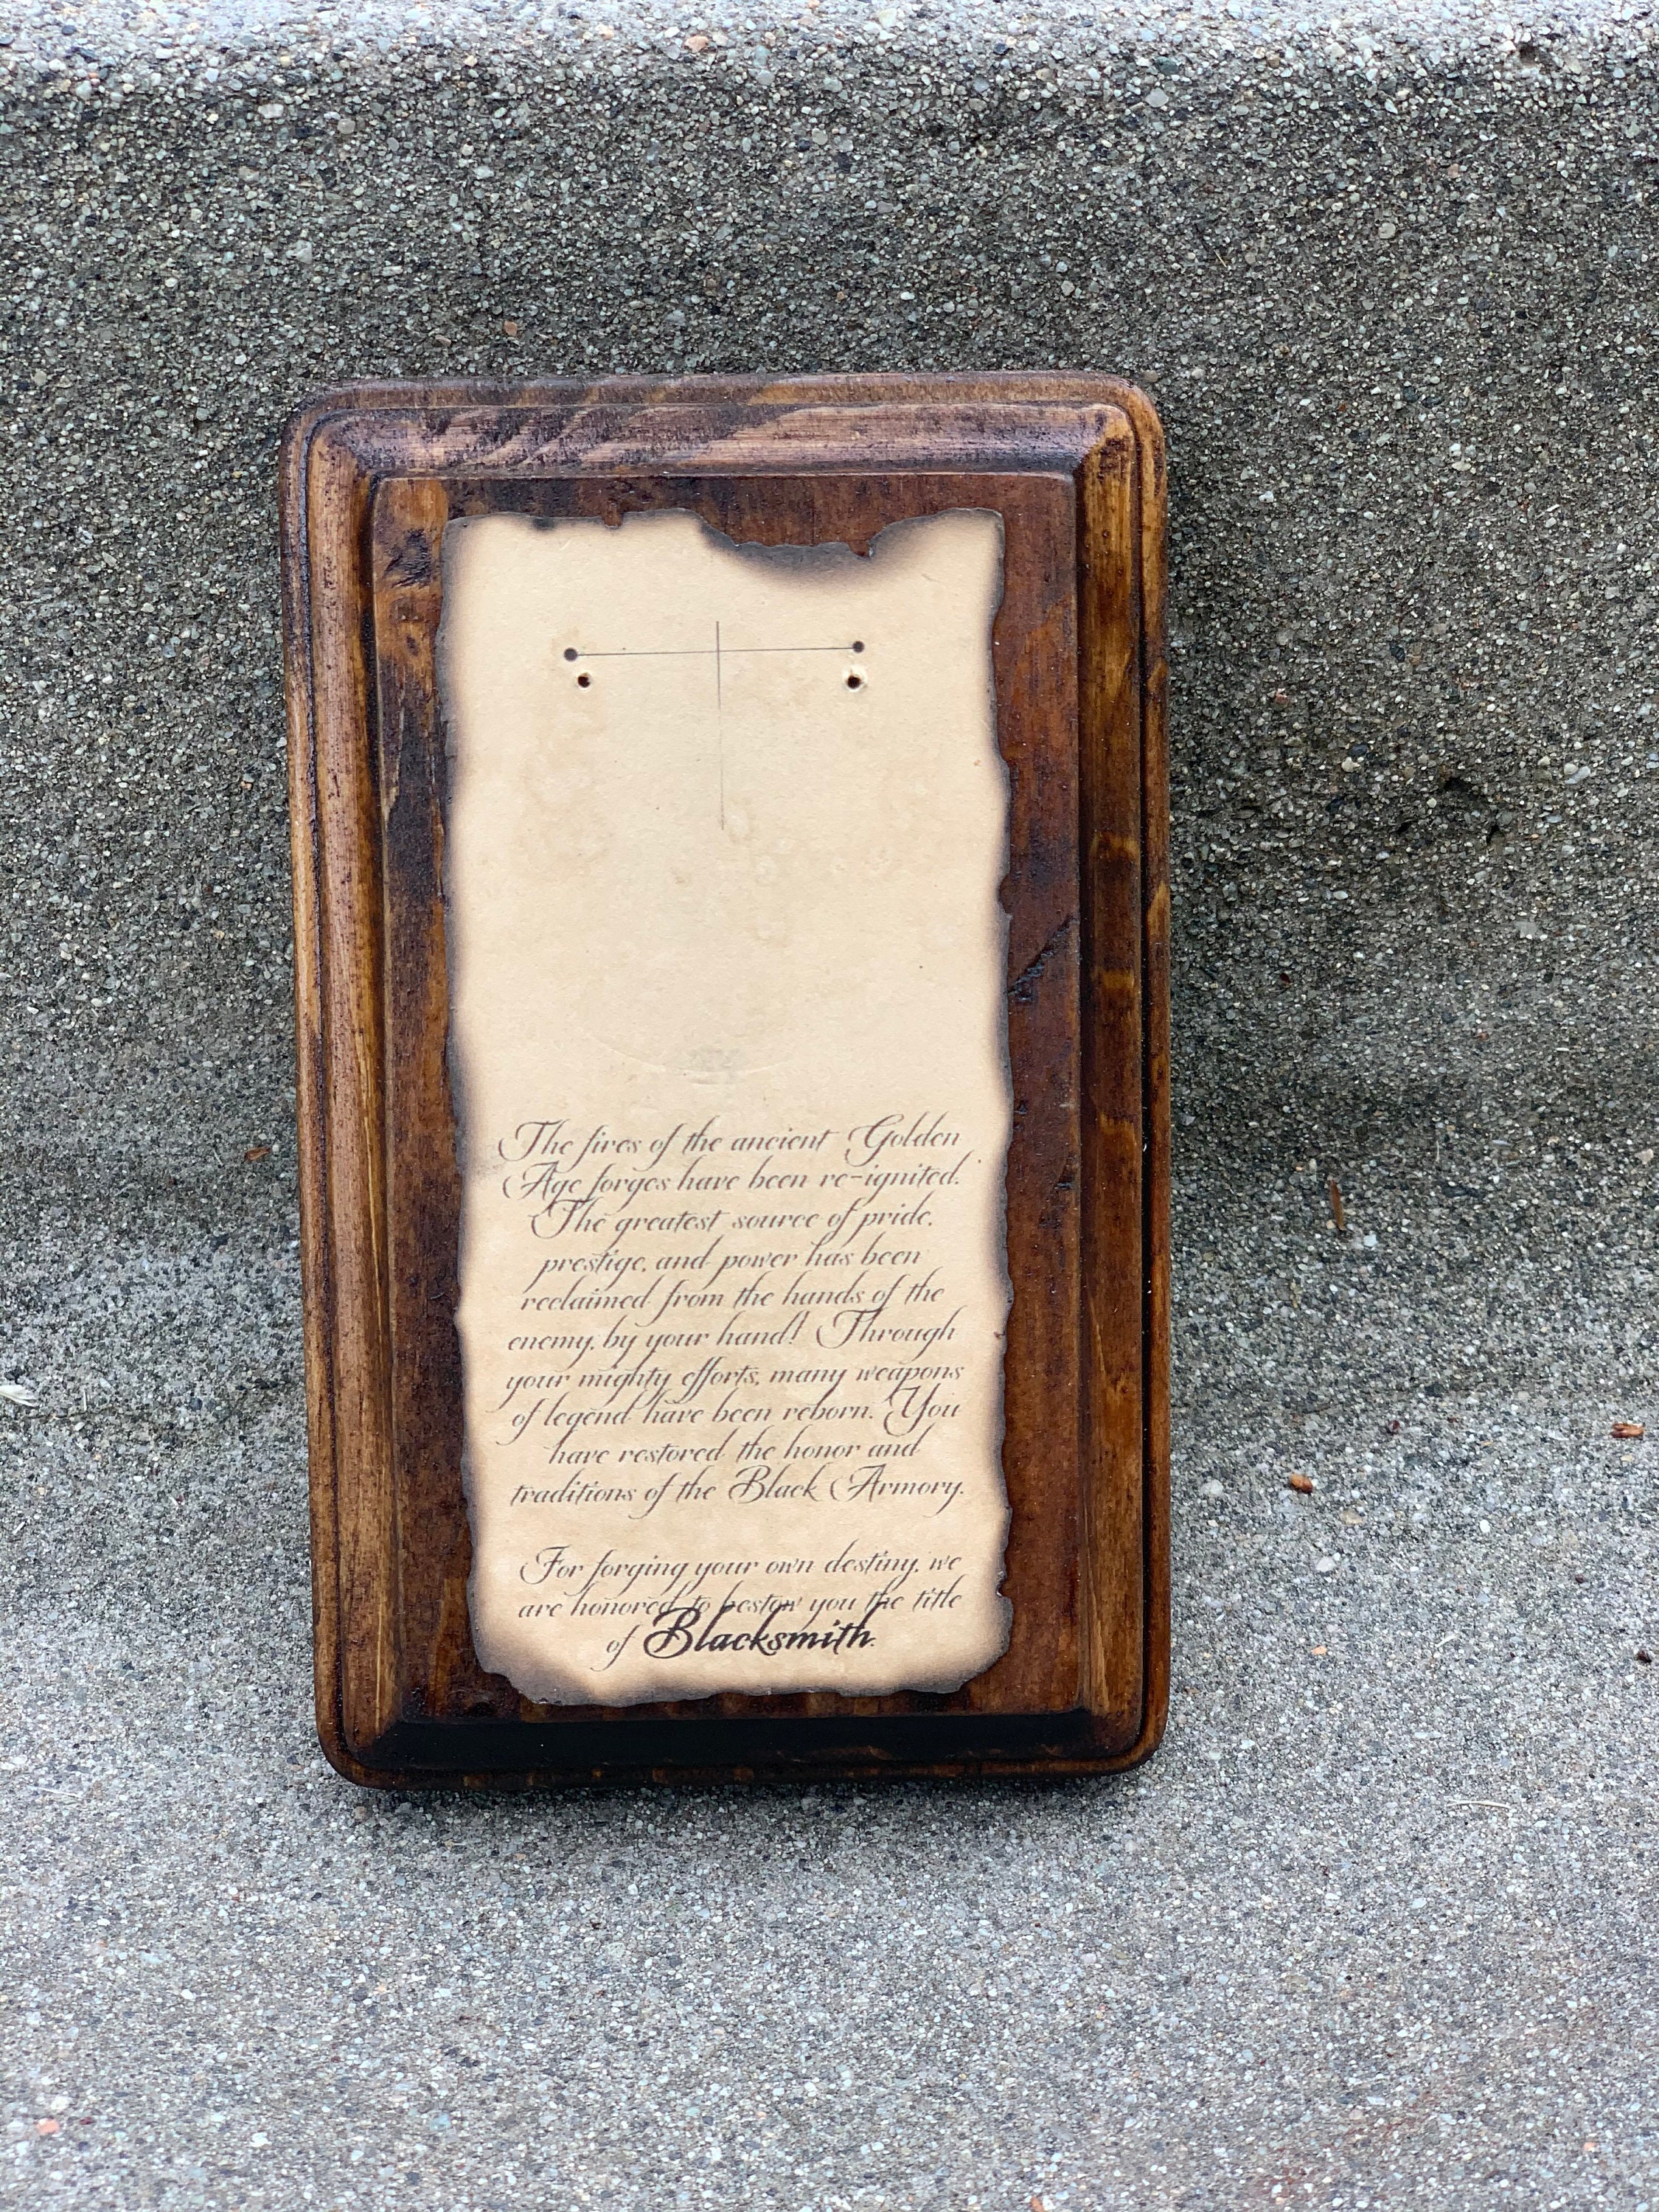 The fires of the ancient Golden
Age forges have been re-ignited.
The greatest source of pride,
prestige, and power has been
reclaimed from the hands of the
enemy, by your hand! Through
your mighty efforts, many weapons
of legend have been reborn. You
have restored the honor and
traditions of the Black Armory.
For forging your own destiny, we
are honored to bestow you the title
of Blacksmith.